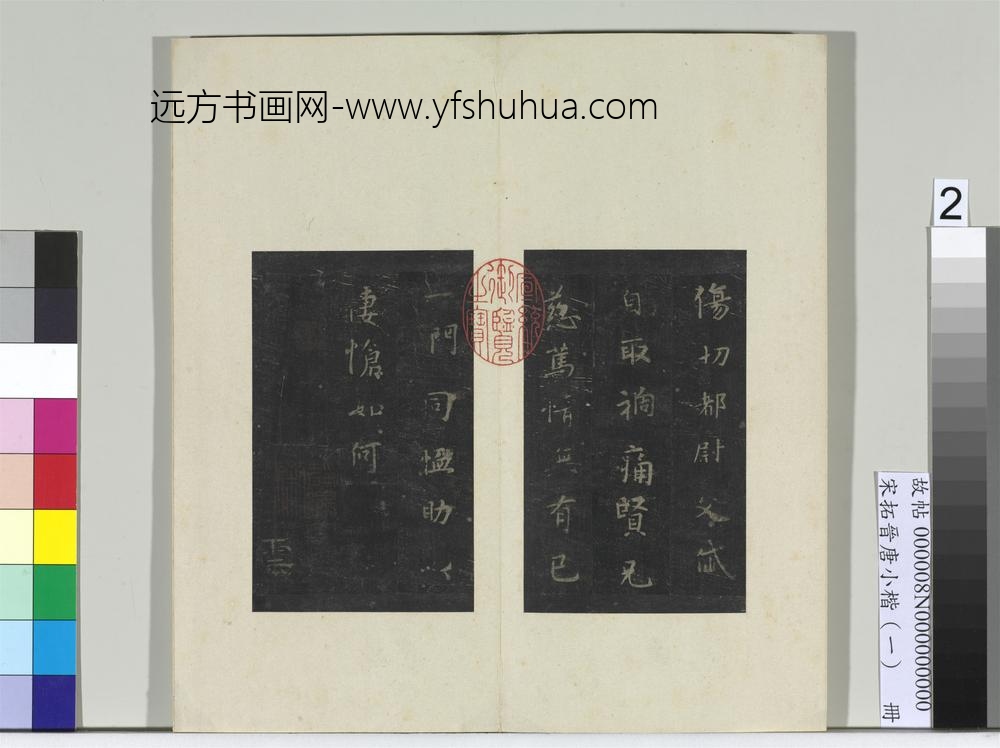 远方书画网-www.yfshuhua.com
2
傷切都尉文岱
自取禍痛賢兄
慈篤情無有已
一門同恤助以
悽愴如何
宣統御覽之寶
故帖 000008N000000000
宋拓晉唐小楷（一） 冊